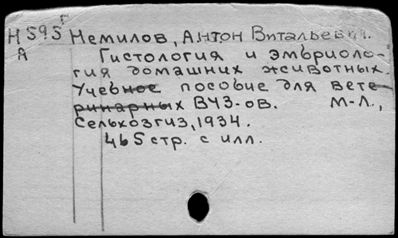 Н 595 г Немилов, Антон Витальевич.
А Гистология и эмбриоло-
гия домашних животных.
Учебное пособие для вете-
ринарных ВУЗ-ов. М-Л.,
Сельхозгиз, 1934.
465 стр. с илл.